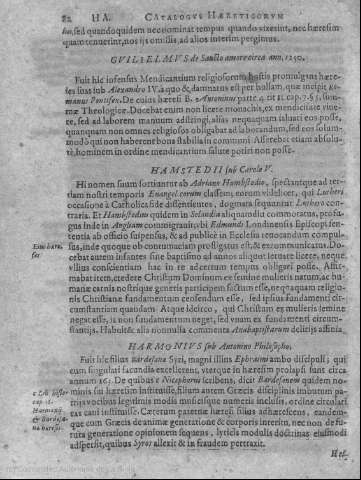 82 HA. CATALOGUS HÆRETICORUM
hoc, sed quandoquidem nec nominat tempus quando vixerint, nec hæresim
quam tenuerint, nos ijs omissis, ad alios interim pergimus.
GVILIELMVS de Sancto amore circa ann, 1250.
Fuit hic infensus Mendicantium religiosorum hostis promulgans hære-
ses suas sub Alexandro IV. à quo & damnatus est per bullam, quæ incipit Ro-
manus Pontifex. De cuius hæresi B. Antoninus parte 4. tit 11. cap. 7. §.5. sum-
mæ Theologicæ. Docebat enim non licere monachis, ex mendicitate vive-
re, sed ad laborem manuum adstringi, alias nequaquam salvari eos posse,
quanquam non omnes religiosos obligabat ad laborandum, sed eos solum-
modò qui non haberent bona stabilia in communi. Asserebat etiam absolu-
tè, hominem in ordine mendicantium salute potiri non posse.
HAMSTEDII sub Carolo V.
Hi nomen suum sortiuntur ab Adriano Hambstedio, spectantque ad ter-
tiam nostri temporis Euangelicorum classem, eorum videlicet, qui Lutheri
occasione à Catholica fide dissentientes, dogmata sequuntur Luthero con-
traria. Et Hambstedius quidem in Selandia aliquamdiu commoratus, profu-
gus inde in Angliam commigravit, ubi Edmundi Londinensis Episcopi sen-
tentia ab officio suspensus, & ad publicè in Ecclesia renocandum compul-
sus, inde quoque ob contumaciam profligatus est, & excommunicatus. Do-
cebat autem infantes sine baptismo ad annos aliquot
villus conscientiam hac in re ad certum tempus obligari posse. Affir-
mabat item, etc. esse Christum Dominum ex semine mulieris natum, ac hu-
manæ carnis nostræque generis participem factum esse, nequaquam religio-
nis Christianæ fundamentum censendum esse, sed ipsius fundamenti cir-
cumstantiam quandam. Atque idcirco, qui Christum ex mulieris semine
negat esse, is non fundamentum neget, sed unam ex fundamenti circum-
stantijs. Habuit & alia nonnulla commenta Anabaptistarum delirijs affinia.
HARMONIVS sub Antonino Philosopho.
Fuit hic filius Bardesanæ Syri, magni illius Ephraim ambo discipuli; qui
cum singulari facundia excelleret, uterque in hæresim prolapsi sunt circa
annum 161. De quibus è Nicephorus scribens, dicit Bardesanem quidem nomi-
nis sui hæresim instituisse, filium autem Græcis disciplinis imbutum pa-
trijs vocibus legitimos modis musicisque numeris inclusis, ordine circulari
eas cani instituisse. Cæterum paternæ hæresi filius adhærescens, eandem-
que cum Græcis de animæ generatione & corporis interitu, nec non de fu-
tura generatione opinionem sequens, lyricis modulis doctrinas eiusmodi
adspersit, quibus Syros allexit & in fraudem pertraxit.
Het-